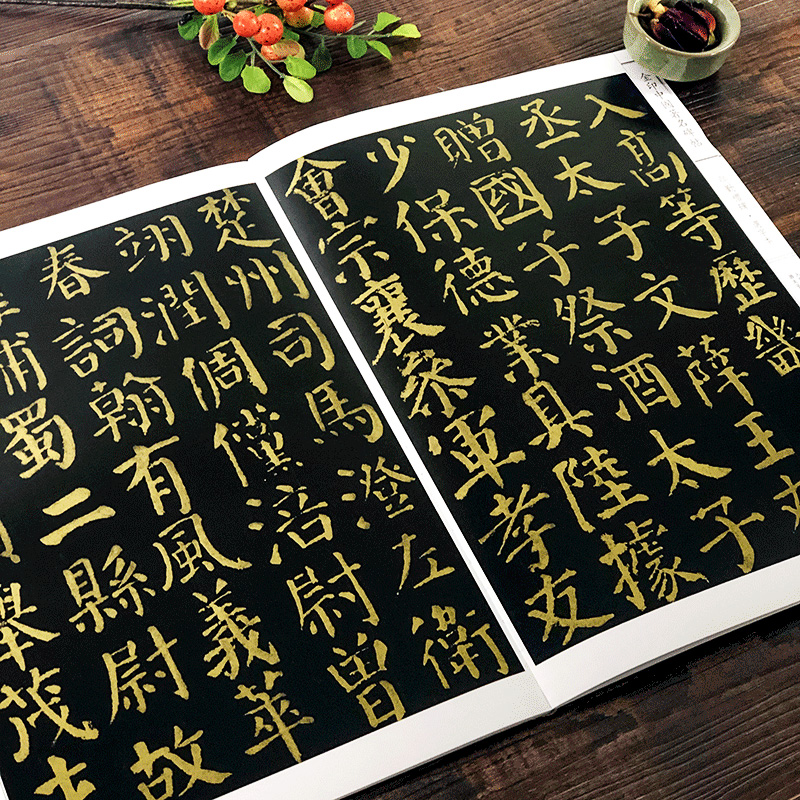 入高等歷畿
丞太子文薛王友
贈國子祭酒太子
少保德業具陸據
會宗襄參軍孝友
楚州司馬澄左衛
翊潤倜儻涪尉曾
春詞翰有風義莘
浦蜀二縣尉故
舉茂